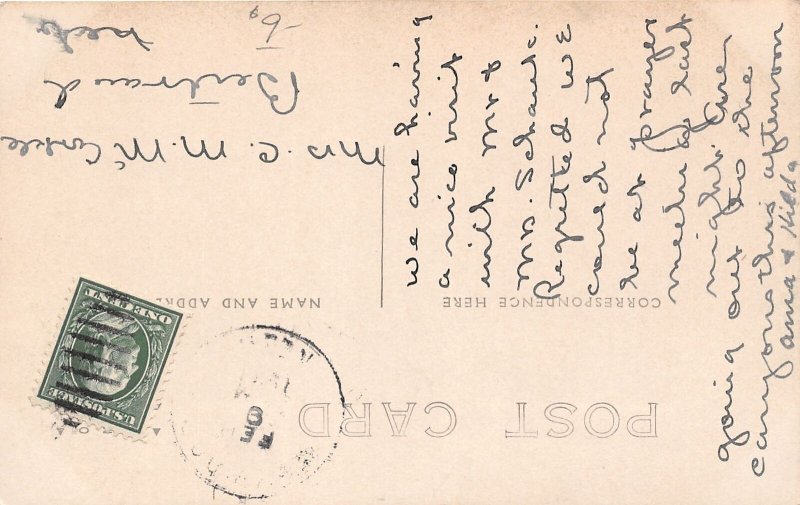 POST CARD
CORRESPONDENCE HERE
NAME AND ADDRE
U.S. POSTAGE
ONE CENT
we are having
a nice visit
with Mr &
Mrs. Schank.
Regretted we
coued not
be at prayer
meeting last
night. Are
going out to the
canyon this afternoon
Anna & Hilda
Mrs. C. M. McCorkle
Bertrand
Nebr